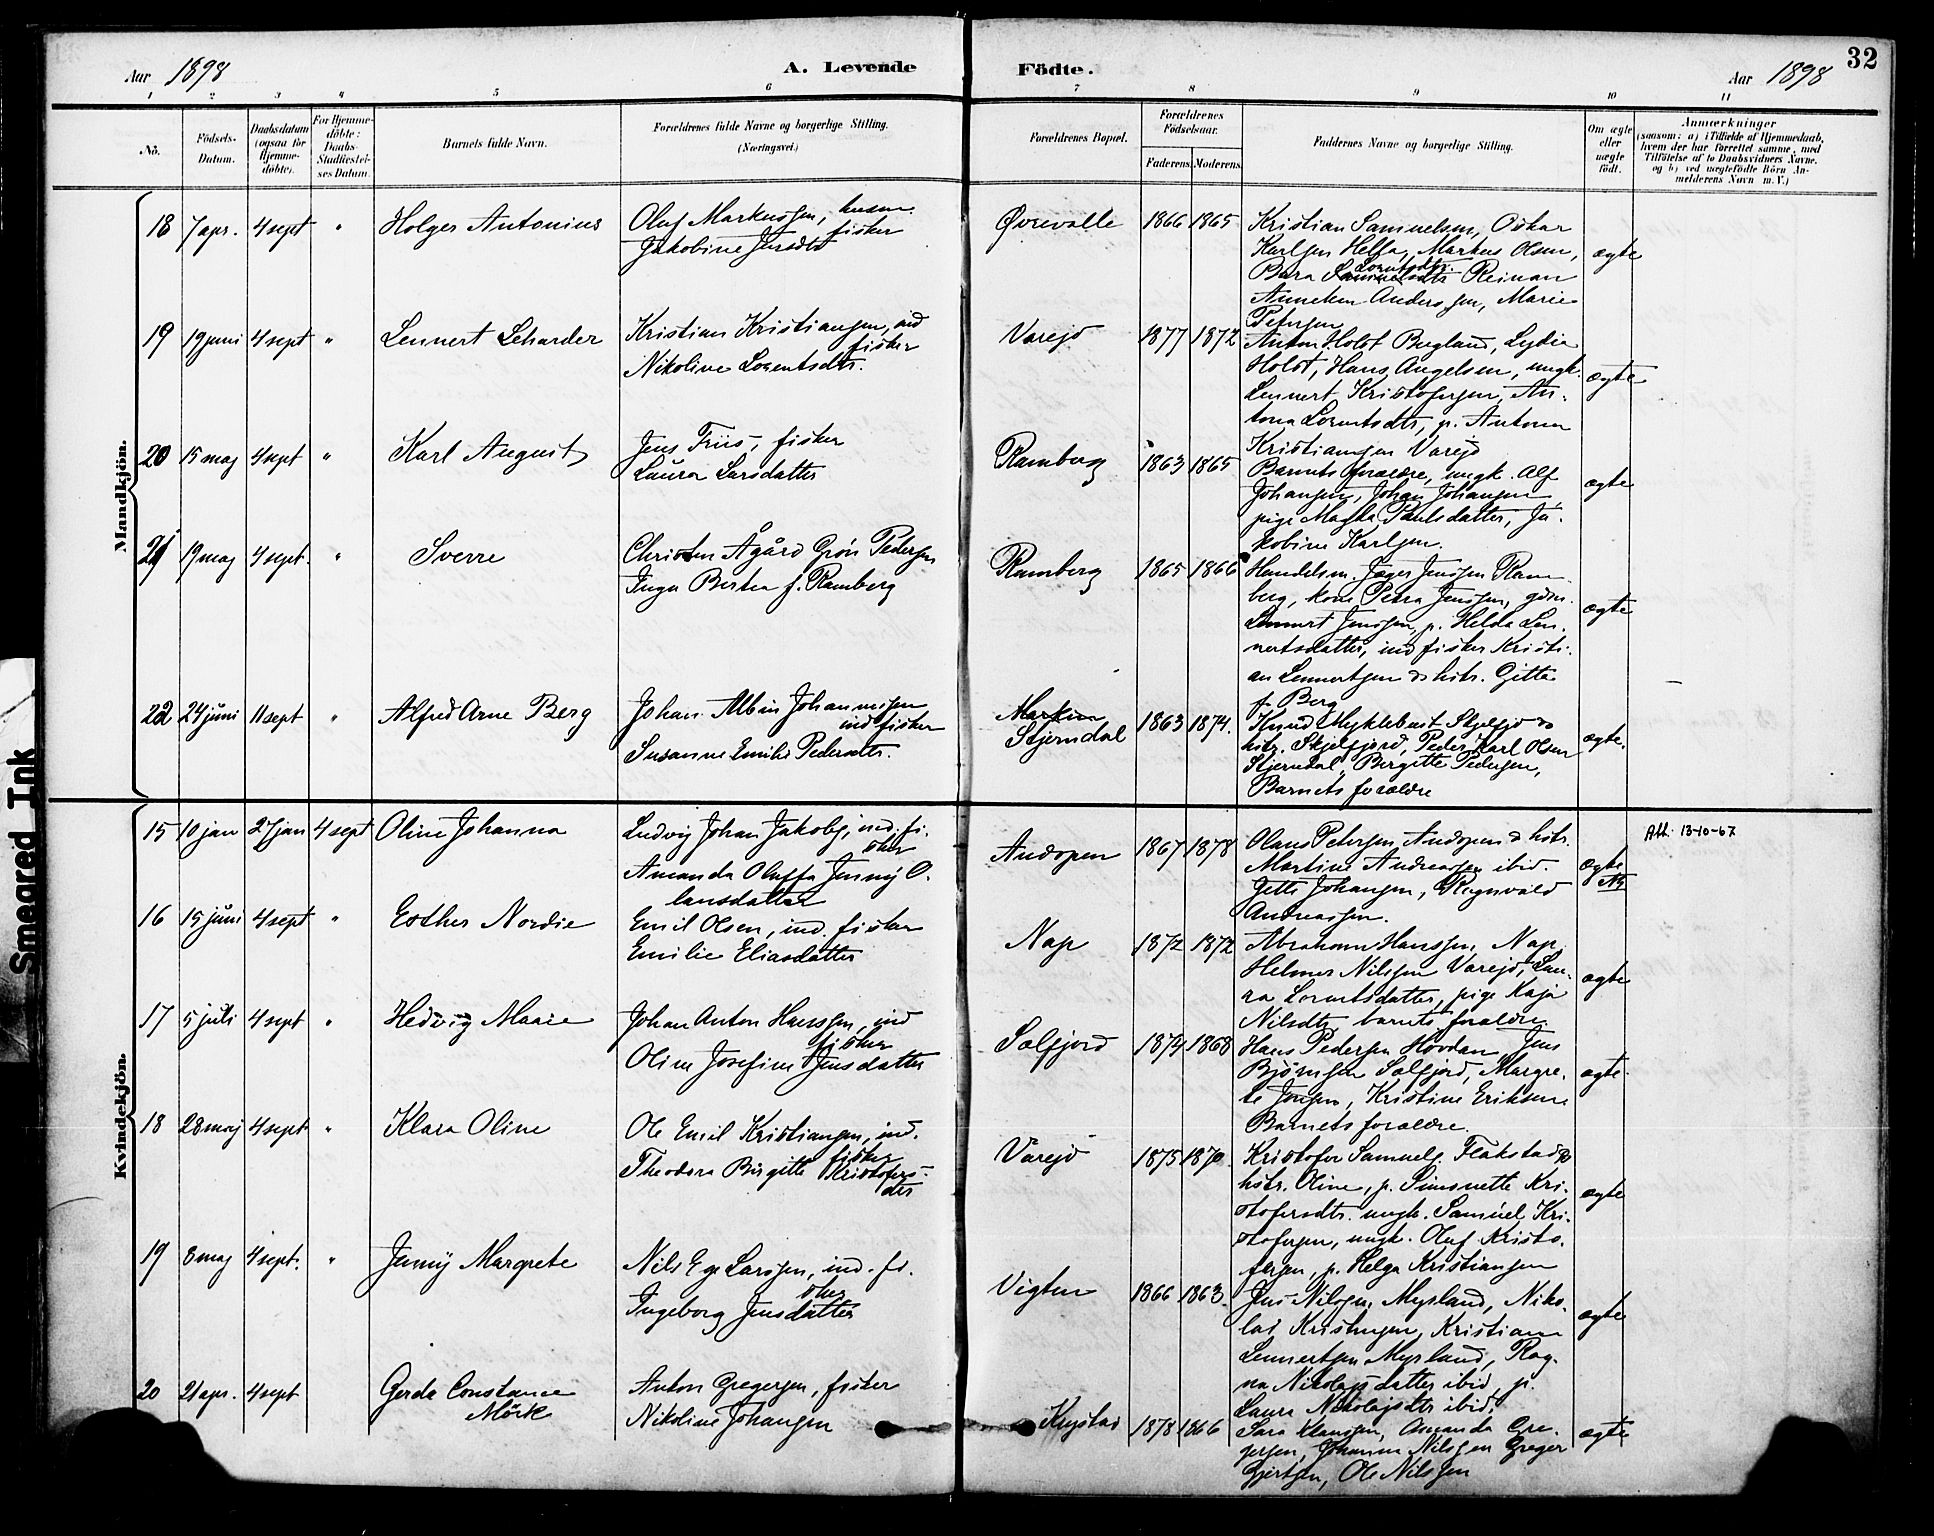 32
Aar 1898
A. Levende Födte.
Aar 1898
1 2 3 4 5 6 7 8 9 10 11
No.
Födsels-Datum.
Daabsdatum (ogsaa for Hjemme-döbte).
For Hjemme-döbte: Daabs-Stadfæstel-ses Datum.
Barnets fulde Navn.
Forældrenes fulde Navne og borgerlige Stilling.
(Næringsvei.)
Forældrenes Bopæl.
Forældrenes Födselsaar.
Faderens. Moderens.
Faddernes Navne og borgerlige Stilling.
Om ægte eller uægte födt.
Anmærkninger
(saasom: a) i Tilfælde af Hjemmedaab,
hvem der har forrettet samme, med
Tilföielse af to Daabsvidners Navne.
og b) ved uægtefödte Börn An-
melderens Navn m. V.)
Mandkjön.
18 7 apr. 4 sept " Holger Antonius
Oluf Markussen, husm. fisker
Jakobine Jensdtr
Øvrevalle 1866 1865
Kristian Samuelsen, Oskar
Karlsen Helfa, Markus Olsen,
Bera Lorntsdtr. Reinan
Anneken Anderssen, Marie
Petersen
ægte
19 19 juni 4 sept " Lennert Leharder
Kristian Kristiansen, ind fisker
Nikoline Lorentsdtr.
Varejd 1877 1872
Anton Holst Bugland, Lydia
Holst, Hans Angelsen, ungk.
Lennert Kristofersen, An-
tona Lorntsdtr, p. Antona
Kristiansen Varejd
ægte
20 15 maj 4 sept " Karl August
Jens Friis, fisker
Laura Larsdatter
Ramberg 1863 1865
Barnets forældre, ungk. Alf
Johansen, Johan Johansen,
pige Magha Paulsdatter, Ja-
kobine Karlsen.
ægte
21 19 maj 4 sept. " Sverre
Christen Ågård Grön Pedersen
Inga Bertea f. Ramberg
Ramberg 1865 1866
Handelsm. Jæger Jenssen Ram-
berg, kone Petra Jenssen, gdm.
Lennert Jenssen, p. Helda Len-
nertsdatter, ind fisker Kristi-
an Lennertsen & hstr. Gitta
f. Berg
ægte
22 24 juni 11 sept " Alfred Arne Berg
Johan Albin Johannesen ind fisker
Susanne Emilie Pedersdtr.
Stjerndal 1863 1874.
Knud Myklebust Skjelfjo &
hstr. Skjelfjord, Peder Karl Olsen
Stjerndal, Bergitte Pedersen,
Barnets forældre
ægte.
Kvindekjön.
15 10 jan 27 jan 4 sept Oline Johanna
Ludvig Johan Jakobs, ind. fi-
sker
Amanda Oluffa Jenny O-
lausdatter
Andopen 1867 1878
Olaus Petersen Andopen & hstr.
Martine Andreassen ibid.
Jette Johansen, Ragnvald
Andreassen.
ægte
Att. 13-10-67
16 15 juni 4 sept " Esther Nordie
Emil Olsen, ind. fisker
Emilie Eliasdatter
Nap 1872 1872
Abraham Hanssen, Nap,
Helmer Nilssen Varejd, Lau-
ra Lorntsdatter, pige Kaja
Nilsdtr, barnets forældre
ægte
17 5 juli 4 sept " Hedvig Maaie
Johan Anton Hanssen, ind fisker
Oline Josefine Jensdatter
Sølfjord 1874 1868
Hans Pedersen Hovdan Jens
Björnsen Sølfjord, Margre-
te Jensen, Kristine Eriksen
Barnets forældre.
ægte
18 28 maj 4 sept " Klara Oline
Ole Emil Kristiansen, ind. fisker
Theodora Birgitte Kristofers-
dtr
Varejd 1875 1870.
Kristofer Samuels. Flakstad &
hstr. Oline, p. Simonette Kri-
stofersdtr. ungk. Samuel Kri-
stofersen, ungk. Oluf Kristo-
fersen, p. Helga Kristiansen
ægte
19 8 maj 4 sept. " Jenny Margrete
Nils Ege Larssen, ind. fi-
sker
Ingeborg Jensdatter
Vigten 1866 1863.
Jens Nilssen Myrland, Niko-
lai Kristensen, Kristiane
Lennertsen Myrland, Rag-
na Nikolajsdatter ibid, p.
Laura Nikolajsdtr ibid.
ægte
20 21 apr. 4 sept Gerda Constance
Mörk
Anton Gregersen, fisker
Nikoline Johansen
Krystad 1878 1866
Sara Klaussen, Amanda Gre-
gersen, Johanna Nilssen Greger
Gjertsen, Ole Nilssen
ægte
Smeared Ink